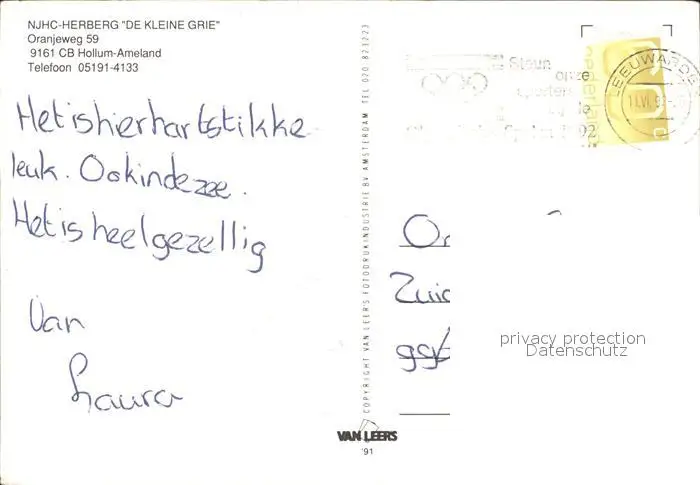 NJHC-HERBERG "DE KLEINE GRIE"
Oranjeweg 59
9161 CB Hollum-Ameland
Telefoon 05191-4133
Het is hier hartstikke
leuk. Ook in de zee.
Het is heel gezellig
Van
Laura
COPYRIGHT VAN LEER'S FOTODRUKINDUSTRIE BV AMSTERDAM TEL 020-823223
VAN LEERS
'91
Steun
onze
LEEUWARDE
nederland
Zuid
privacy protection
Datenschutz